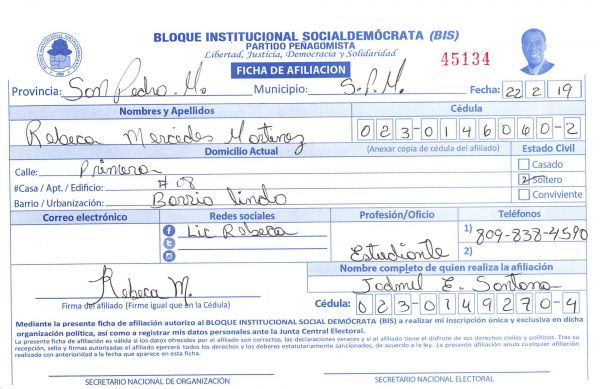 BLOQUE INSTITUCIONAL SOCIALDEMÓCRATA (BIS)
PARTIDO PEÑAGOMISTA
Libertad, Justicia, Democracia y Solidaridad
45134
FICHA DE AFILIACION
Provincia: San Pedro M. Municipio: S.P.M. Fecha: 22 2 19
Nombres y Apellidos Cédula
Rebeca Mercedes Martinez 023-0146060-2
Domicilio Actual (Anexar copia de cédula del afiliado) Estado Civil
Calle: Primera Casado
#Casa / Apt. / Edificio: #08 Soltero
Barrio / Urbanización: Barrio lindo Conviviente
Correo electrónico Redes sociales Profesión/Oficio Teléfonos
Lic Rebeca Estudiante 1) 809-838-4590
2)
Nombre completo de quien realiza la afiliación
Rebeca M. E. Santana
Firma del afiliado (Firme igual que en la Cédula) Cédula: 023-0149270-4
Mediante la presente ficha de afiliación autorizo al BLOQUE INSTITUCIONAL SOCIAL DEMÓCRATA (BIS) a realizar mi inscripción única y exclusiva en dicha
organización política, así como a registrar mis datos personales ante la Junta Central Electoral.
La presente ficha de afiliación es válida si los datos ofrecidos por el afiliado son correctos, las declaraciones veraces y si el afiliado tiene el disfrute de sus derechos civiles y políticos. Tras su
recepción, sello y firmas autorizadas el afiliado ejercerá todos los derechos y los deberes estatutariamente sancionados, de acuerdo a la ley. La presente afiliación anula cualquier afiliación
realizada con anterioridad a la fecha que aparece en esta ficha.
SECRETARIO NACIONAL DE ORGANIZACIÓN SECRETARIO NACIONAL ELECTORAL